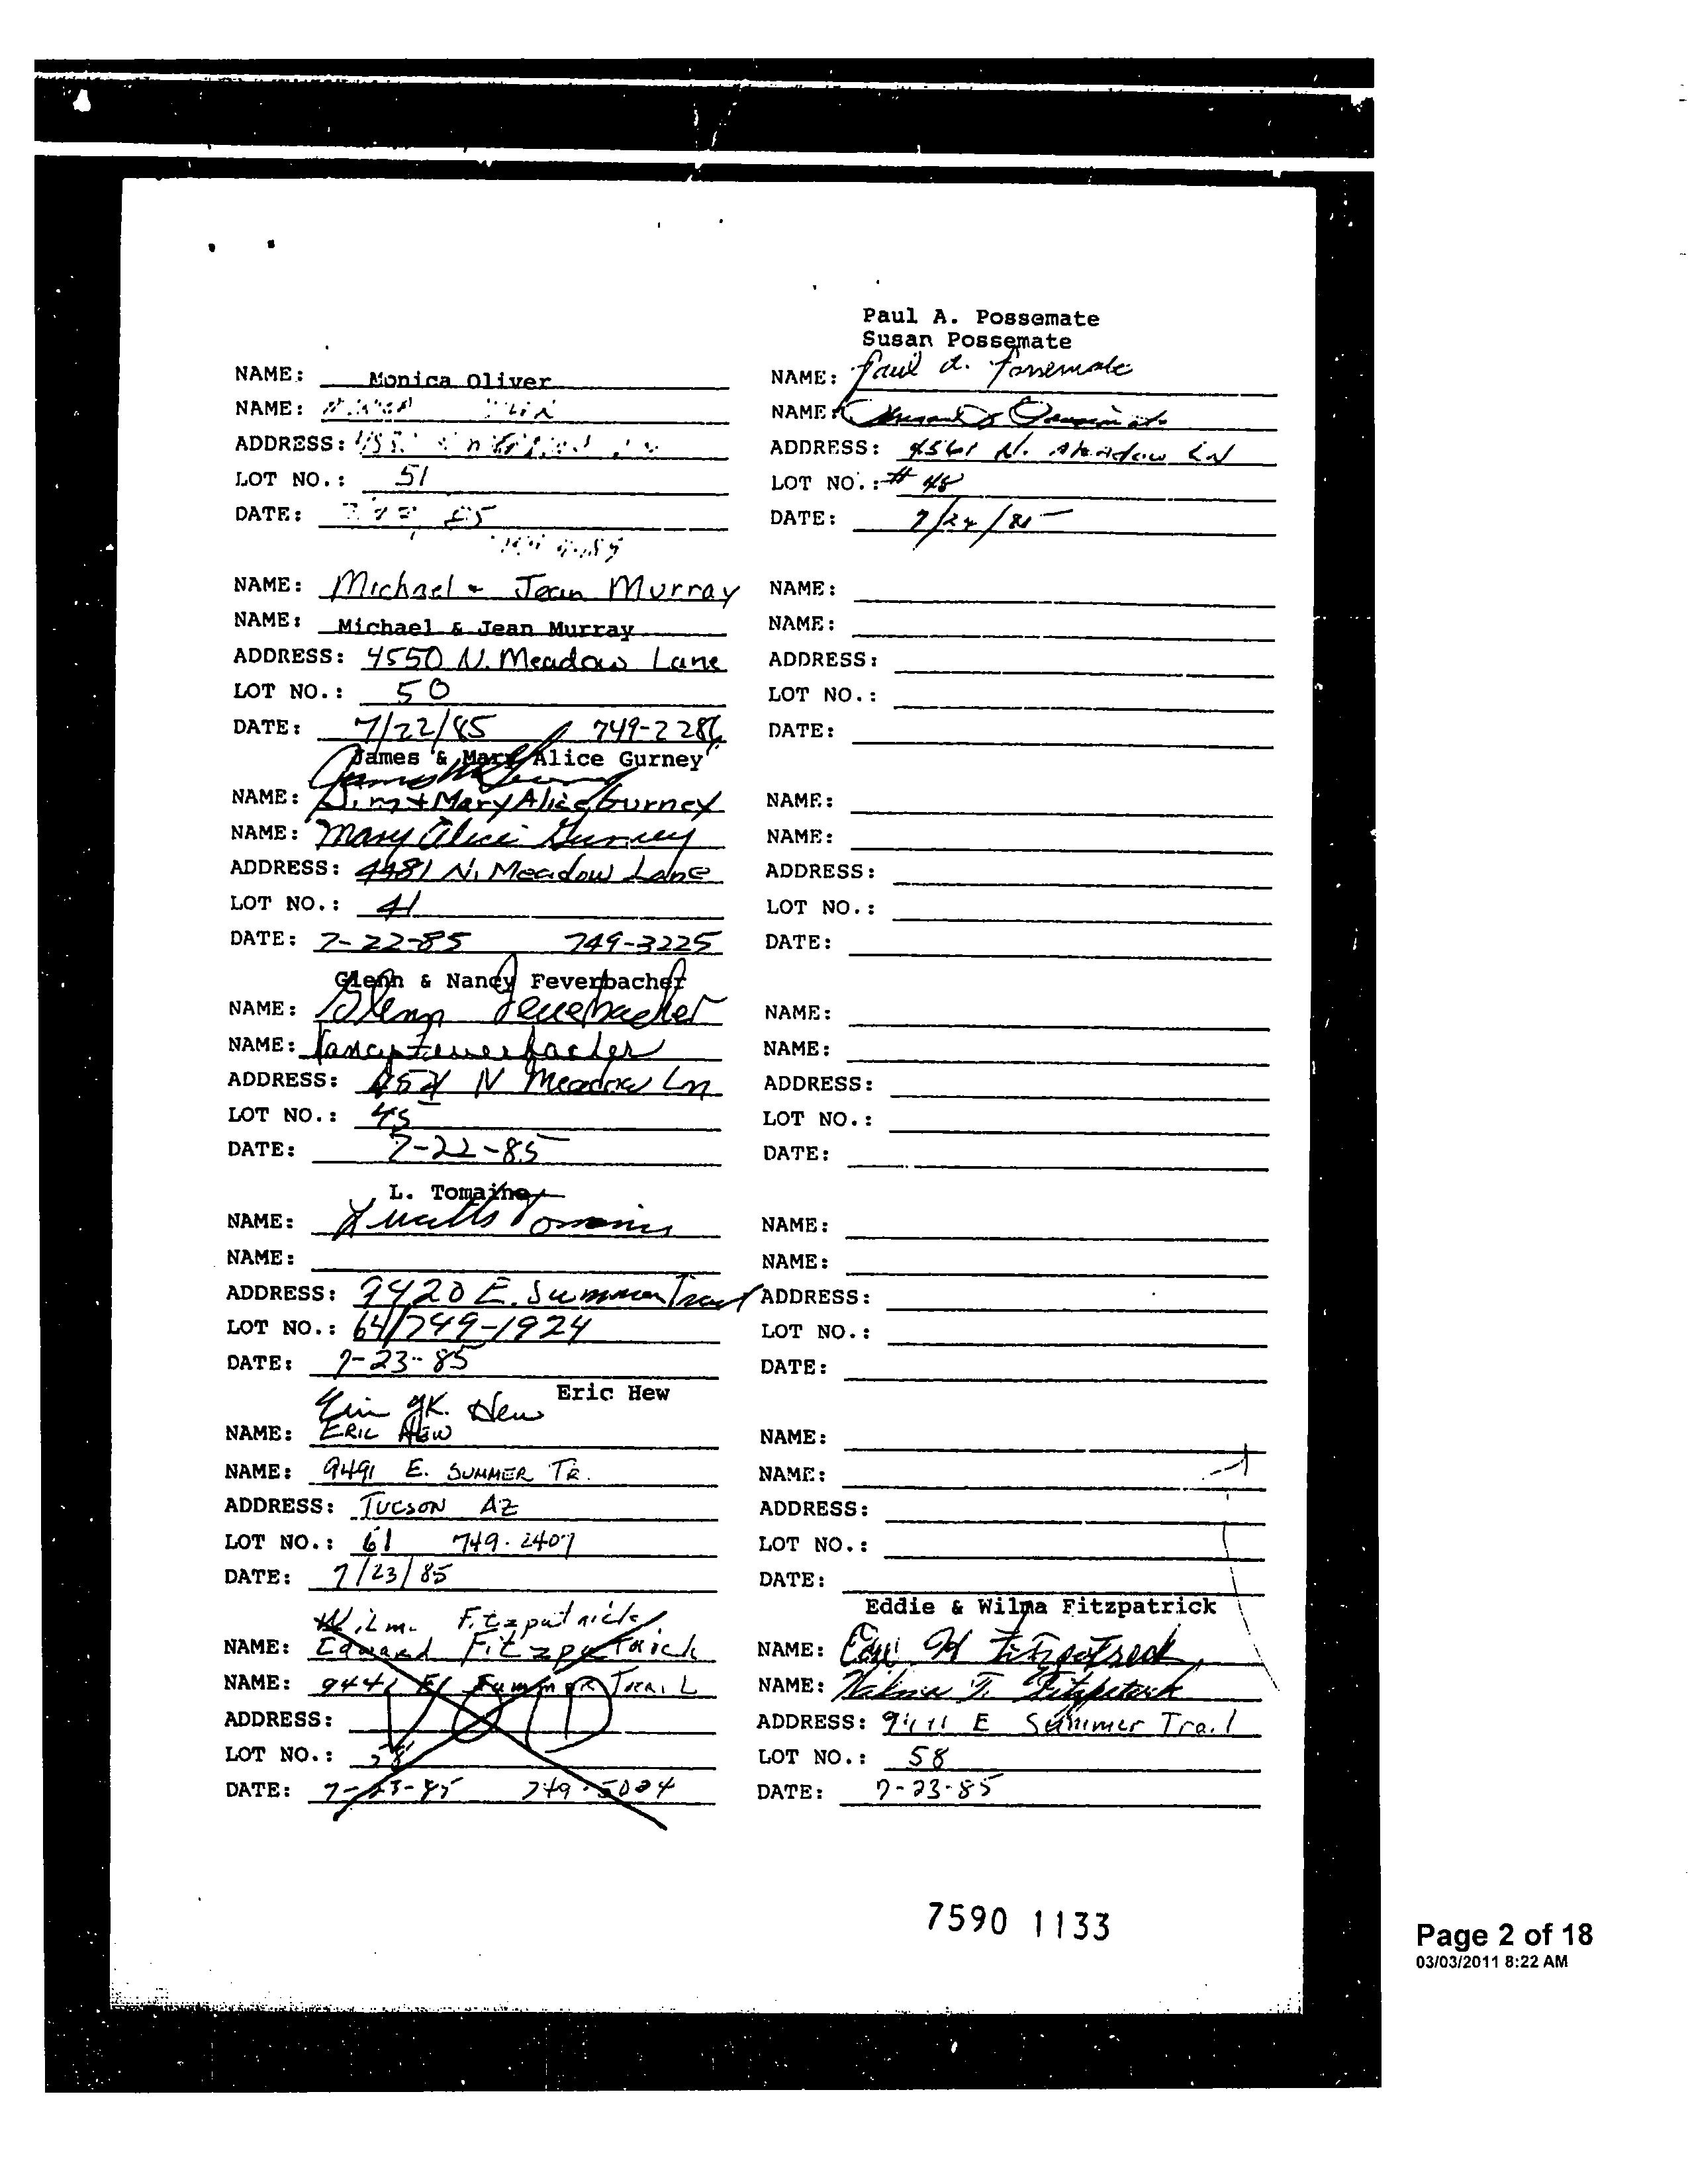 NAME: Monica Oliver
NAME:
ADDRESS:
LOT NO.: 51
DATE: 85
NAME: Michael & Jean Murray
NAME: Michael & Jean Murray
ADDRESS: 4550 N. Meadow Lane
LOT NO.: 50
DATE: 7/22/85 749-2286
James & Mary Alice Gurney
NAME: Jim + Mary Alice Gurney
NAME: Mary Alice Gurney
ADDRESS: 4481 N. Meadow Lane
LOT NO.: 41
DATE: 7-22-85 749-3225
Glenn & Nancy Feverbacher
NAME: Glenn Feuerbacher
NAME: Nancy Feuerbacher
ADDRESS: N Meadow Ln
LOT NO.: 45
DATE: 7-22-85
L. Tomaino
NAME:
NAME:
ADDRESS: 9420 E. Summer Trail
LOT NO.: 64/749-1924
DATE: 7-23-85
Eric Hew
Eric K. Hew
NAME: ERIC HEW
NAME: 9491 E. SUMMER TR.
ADDRESS: TUCSON AZ
LOT NO.: 61 749-2407
DATE: 7/23/85
Wilma Fitzpatrick
NAME: Edward Fitzpatrick
NAME: 9441 E Summer Trail
ADDRESS: VOID
LOT NO.: 58
DATE: 7-23-85 749-5004
Paul A. Possemate
Susan Possemate
NAME: Paul A. Possemate
NAME: Susan Possemate
ADDRESS: 4561 N. Meadow LN
LOT NO.: # 48
DATE: 7/24/85
NAME:
NAME:
ADDRESS:
LOT NO.:
DATE:
NAME:
NAME:
ADDRESS:
LOT NO.:
DATE:
NAME:
NAME:
ADDRESS:
LOT NO.:
DATE:
NAME:
NAME:
ADDRESS:
LOT NO.:
DATE:
NAME:
NAME:
ADDRESS:
LOT NO.:
DATE:
Eddie & Wilma Fitzpatrick
NAME: Fitzpatrick
NAME: Wilma T. Fitzpatrick
ADDRESS: E Summer Trail
LOT NO.: 58
DATE: 7-23-85
7590 1133
Page 2 of 18
03/03/2011 8:22 AM